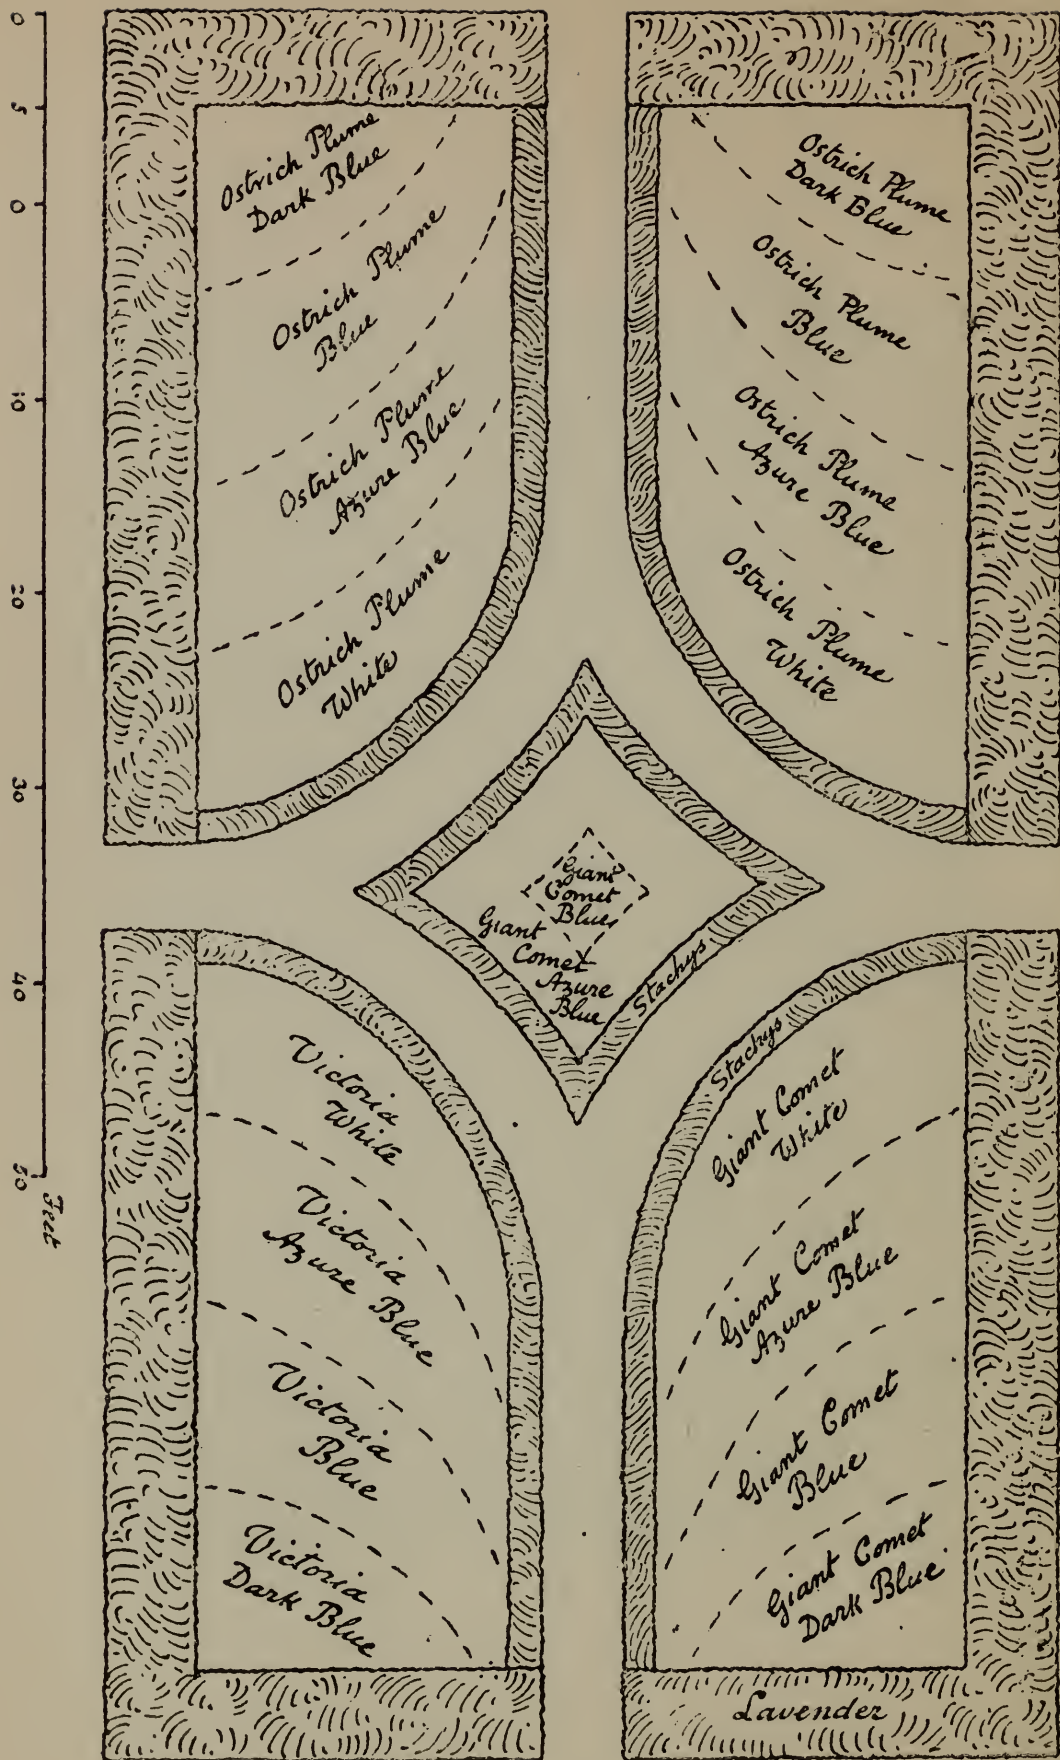 0
5
0
10
20
30
40
50
Feet
Ostrich Plume
Dark Blue
Ostrich Plume
Blue
Ostrich Plume
Azure Blue
Ostrich Plume
White
Ostrich Plume
Dark Blue
Ostrich Plume
Blue
Ostrich Plume
Azure Blue
Ostrich Plume
White
Giant
Comet
Blue
Giant
Comet
Azure
Blue
Stachys
Victoria
White
Victoria
Azure Blue
Victoria
Blue
Victoria
Dark Blue
Stachys
Giant Comet
White
Giant Comet
Azure Blue
Giant Comet
Blue
Giant Comet
Dark Blue
Lavender